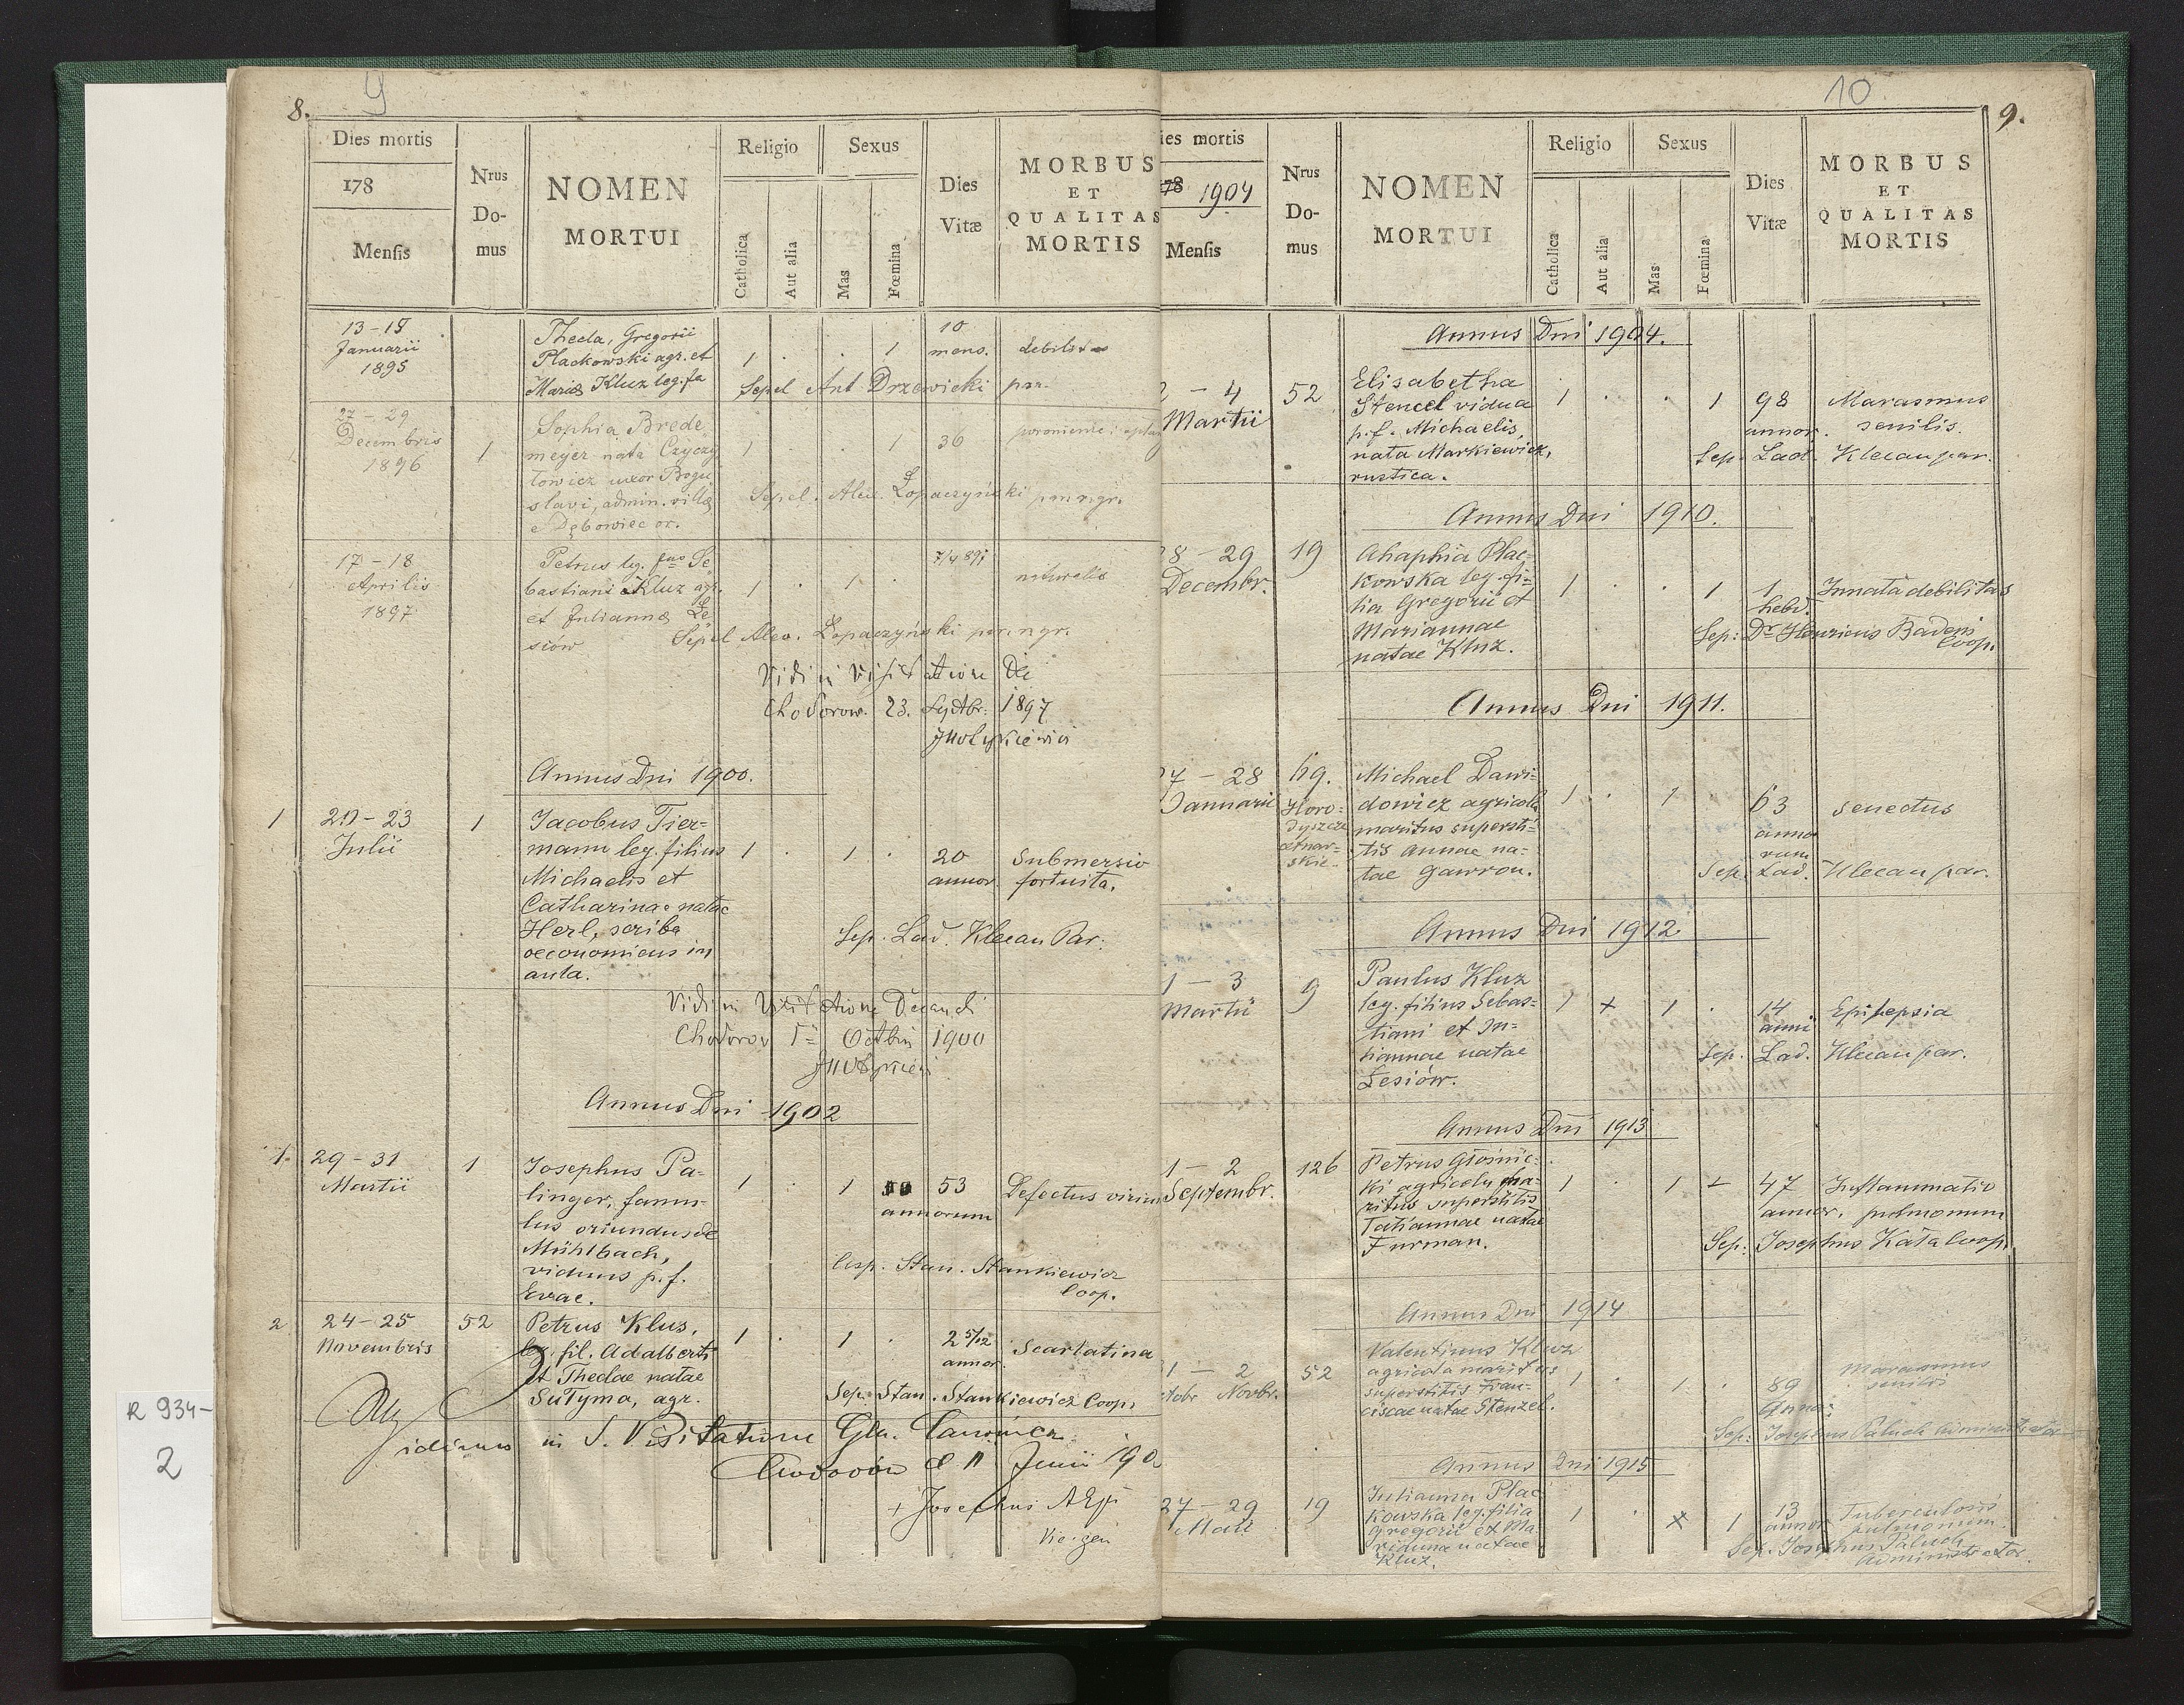 8.
9
Dies mortis
178
Mensis
Nrus
Do-
mus
NOMEN
MORTUI
Religio
Catholica
Aut alia
Sexus
Mas
Fœmina
Dies
Vitæ
MORBUS
ET
QUALITAS
MORTIS
13-15
Januarii
1895
Thecla, Gregorii
Plackowski agr. et
Mariæ Kluz leg. fa
1 . . 1
10
mens.
debilitas
Sepel Ant Drzewicki par.
27-29
Decembris
1896
1
Sophia Brede
meyer nata Czyczy
łowicz uxor Bogu
slavi, admin. villæ
e Dębowiec or.
1 . . 1 36
poronienie
Sepel. Alex. Łopaczyński par. r. gr.
17-18
Aprilis
1897
Petrus leg. fus Se
bastiani Kluz agr.
et Juliannæ Le
siów
1 . 1 .
naturalis
Sepel Alex. Łopaczyński par. r. gr.
Vidi in visitatione De
Chodorow. 23. Septbr. 1897
Annus Dni 1900.
1
21-23
Julii
1
Jacobus Tier-
mann leg. filius
Michaelis et
Catharinae natae
Herl, scriba
oeconomicus in
aula.
1 . 1 .
20
annor.
Submersio
fortuita.
Sep. Lad. Klecan Par.
Vidi in Visitatione Decandi
Chodorov 1 Octbris 1900
Annus Dni 1902
1.
29-31
Martii
1
Josephus Pa-
linger, famu-
lus oriundus de
Mühlbach,
viduus p. f.
Evae.
1 . 1
53
annorum
Defectus virium
Stan. Stankiewicz
Coop.
2
24-25
Novembris
52
Petrus Klus,
leg. fil. Adalberti
et Theclae natae
Sutyma, agr.
1 . 1 .
2 5/12
annor.
Scarlatina
Sep. Stan. Stankiewicz Coop.
Vidimus in S. Visitatione Gln. Canonica
Chodorów d 11 Junii 190
+ Josephus
R 934-
2
10
9.
ies mortis
178 1904
Mensis
Nrus
Do-
mus
NOMEN
MORTUI
Religio
Catholica
Aut alia
Sexus
Mas
Fœmina
Dies
Vitæ
MORBUS
ET
QUALITAS
MORTIS
Annus Dni 1904.
2 - 4
Martii
52
Elisabetha
Stencel vidua
p. f. Michaelis,
nata Markiewicz,
rustica.
1 . . 1
98
annor.
Marasmus
senilis.
Sep. Lad. Klecan par.
Annus Dni 1910.
28 - 29
Decembr.
19
Ahaphia Plac-
kowska leg. fi-
lia Gregorii et
Mariannae
natae Kluz.
1 . . 1
1
hebd.
Innata debilitas
Sep: Dr Henricus Badeni
Coop.
Annus Dni 1911.
27 - 28
Januarii
69.
Horo-
dyszcze
cetnar-
skie.
Michael Dawi-
dowicz agricola
maritus supersti-
tis Annae na-
tae Gawron.
1 . 1
63
anno
rum
senectus
Sep. Lad. Klecan par.
Annus Dni 1912
1 - 3
Martii
9
Paulus Kluz
leg. filius Sebas-
tiani et Ju-
liannae natae
Lesiów.
1 + 1 .
14
anni
Epilepsia
Sep. Lad. Klecan par.
Annus Dni 1913
1 - 2
Septembr.
126
Petrus Głośnic-
ki agricola ma-
ritus superstitis
Tatiannae natae
Furman.
1 . 1 +
47
annor.
Inflammatio
pulmonum
Sep: Josephus Kata Coop.
Annus Dni 1914
1 - 2
Novbr.
52
Valentinus Kluz
agricola maritus
superstitis Fran-
ciscae natae Stenzel.
1 . 1 .
89
Anno:
Marasmus
senilis
Sep: Josephus Paluch Administrator
Annus Dni 1915
27-29
Maii
19
Julianna Plac
kowska leg. filia
Gregorii et Ma
rianna natae
Kluz.
1 . x 1
13
annor.
Tuberculosis
pulmonum.
Sep. Josephus Paluch
Administrator.